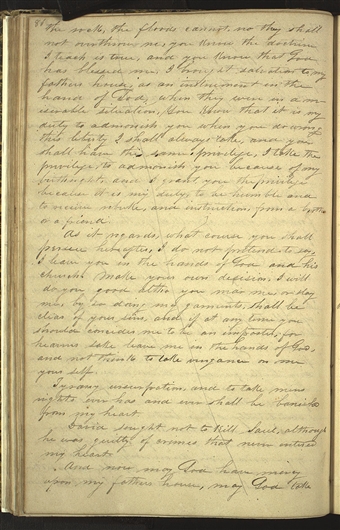 the rock, the floods cannot, no they shall
not overthrow me, you know the doctrine
I teach is true, and you know that God
has blessed me, I brought salvation to my
fathers house, as an instrument in the
hand of God, when they were in a mi-
serable situation, You know that it is my
duty to admonish you when you do wrong
this liberty I shall always take, and you
shall have the same privilege, I take the
privilege to admonish you because of my
birthright, and I grant you the privilege
because it is my duty to be humble and
to receive rebuke, and instruction, from a brother
or a friend.
As it regards, what course you shall
persue hereafter, I do not pretend to say
I leave you in the hands of God and his
church. Make your own decision, I will
do you good altho you mar me, or slay
me, by so doing my garments, shall be
clear of your sins, and if at any time you
should consider me to be an imposter, for
heavens sake leave me in the hands of God,
and not think to take vengance on me
your self.
Tyrany, usurpation, and to take mens
rights ever has and ever shall be banished
from my heart.
David sought not to kill Saul, although
he was guilty of crimes that never entered
my heart.
And now may God have mercy
upon my fathers house, may God take